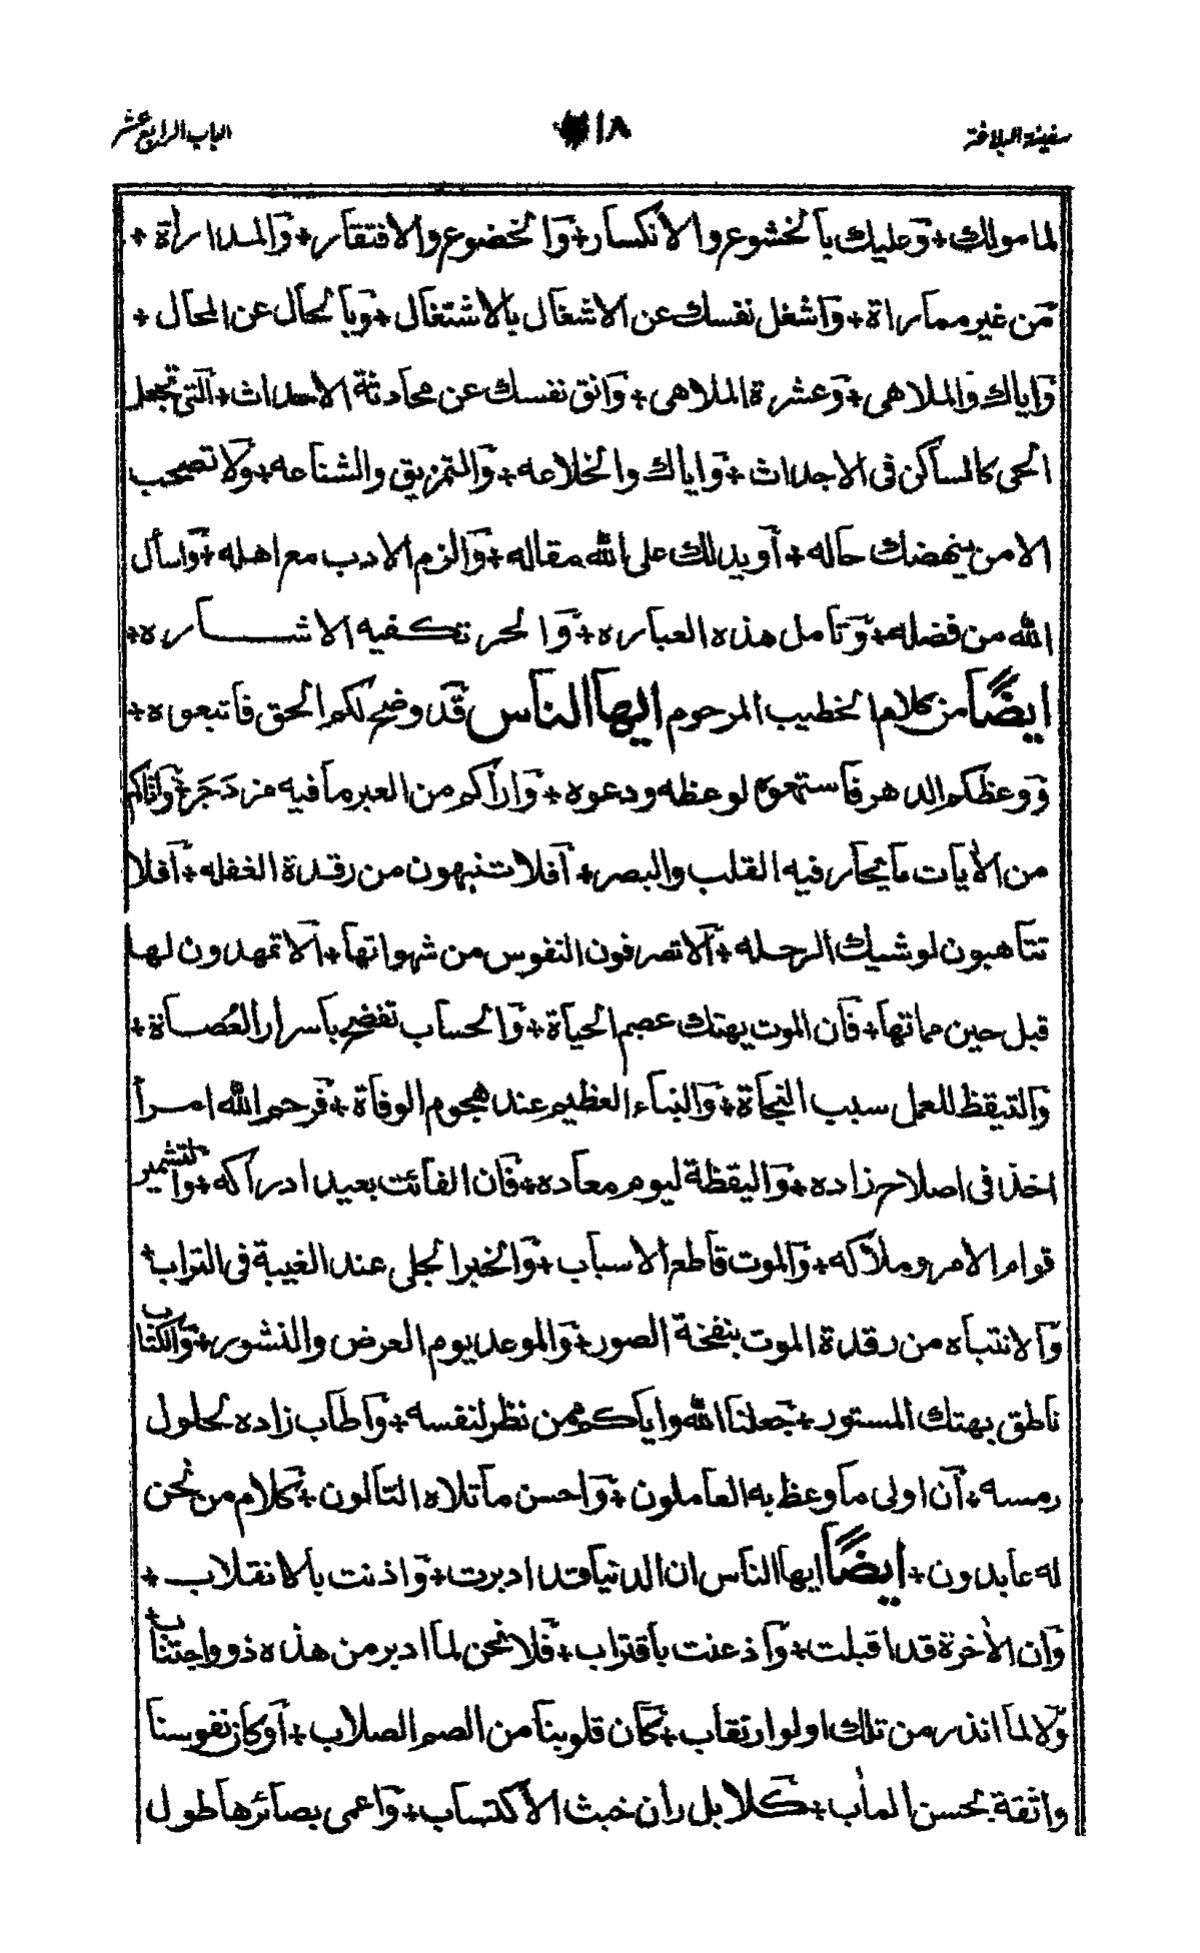 سفينة البلاغة ١٨ الباب الرابع عشر
لما مولك + وعليك بالخشوع والانكسار + والخضوع والافتقار + والمدارأة +
من غير مماراة + واشغل نفسك عن الاشغال بالاشتغال + وبالحال عن المحال +
واياك والملاهى + وعشرة الملاهى + وانق نفسك عن محادثة الاحداث + التى تجعل
الحى كالساكن فى الاجداث + واياك والخلاعه + والتمزيق والشناعه + ولا تصحب
الا من ينهضك حاله + أو يدلك على الله مقاله + والزم الادب مع اهله + واسأل
الله من فضله + وتأمل هذه العباره + والحر تكفيه الاشاره +
ايضًا من كلام الخطيب المرحوم ايها الناس قد وضح لكم الحق فاتبعوه +
ووعظكم الدهر فاستمعوا لوعظه ودعوه + وارأكم من العبر ما فيه مزدجر + واتاكم
من الأيات ما يحار فيه القلب والبصر + أفلا تنبهون من رقدة الغفله + أفلا
تتأهبون لوشيك الرحله + ألا تصرفون النفوس من شهواتها + ألا تمهدون لها
قبل حين مماتها + فان الموت يهتك عصم الحياة + والحساب تفضح باسرار العُصاة +
والتيقظ للعمل سبب النجاة + والنباء العظيم عند هجوم الوفاة + فرحم الله امرأ
اخذ فى اصلاح زاده + واليقظة ليوم معاده + فان الفائت بعيد ادراكه + والتشمير
قوام الامر وملاكه + والموت قاطع الاسباب + والخبر الجلى عند الغيبة فى التراب +
والانتباه من رقدة الموت بنفخة الصور + والموعد يوم العرض والنشور + والكتاب
ناطق بهتك المستور + جعلنا الله واياكم ممن نظر لنفسه + واطاب زاده لحلول
رمسه + أن اولى ما وعظ به العاملون + واحسن ما تلاه التالون + كلام من نحن
له عابدون + ايضًا ايها الناس ان الدنيا قد ادبرت + واذنت بالانقلاب +
وان الأخرة قد اقبلت + واذعنت باقتراب + فلا نحن لما ادبر من هذه ذوو اجتناب +
ولا لما انذر من تلك اولو ارتقاب + كأن قلوبنا من الصم الصلاب + أو كان نفوسنا
واثقة بحسن المأب + كلا بل ران خبث الأكتساب + واعمى بصائرها طول